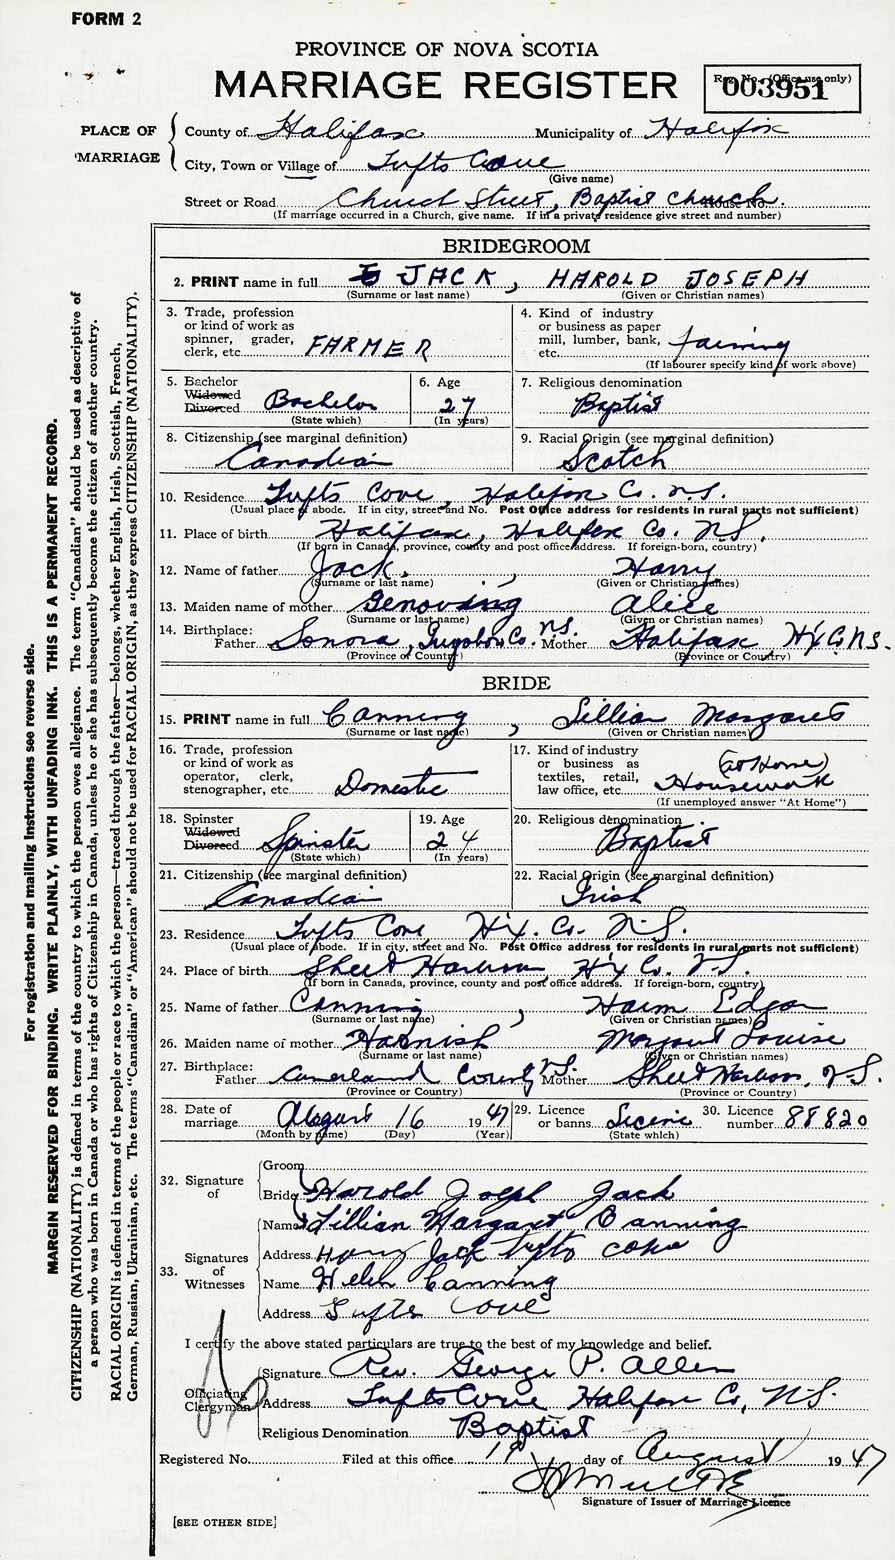 FORM 2
PROVINCE OF NOVA SCOTIA
MARRIAGE REGISTER
Reg. No. (Office use only)
003951
PLACE OF MARRIAGE
County of Halifax Municipality of Halifax
City, Town or Village of Tufts Cove
(Give name)
Street or Road Church Street, Baptist Church. House No.
(If marriage occurred in a Church, give name. If in a private residence give street and number)
BRIDEGROOM
2. PRINT name in full JACK, HAROLD JOSEPH
(Surname or last name) (Given or Christian names)
3. Trade, profession or kind of work as spinner, grader, clerk, etc. FARMER
4. Kind of industry or business as paper mill, lumber, bank, etc. Farming
(If labourer specify kind of work above)
5. Bachelor Widowed Divorced Bachelor
(State which)
6. Age 27
(In years)
7. Religious denomination
Baptist
8. Citizenship (see marginal definition)
Canadian
9. Racial Origin (see marginal definition)
Scotch
10. Residence Tufts Cove, Halifax Co. N.S.
(Usual place of abode. If in city, street and No. Post Office address for residents in rural parts not sufficient)
11. Place of birth Halifax, Halifax Co. N.S.
(If born in Canada, province, county and post office address. If foreign-born, country)
12. Name of father Jack, Harry
(Surname or last name) (Given or Christian names)
13. Maiden name of mother Alice
(Surname or last name) (Given or Christian names)
14. Birthplace: Father Sonora, Co. N.S. Mother Halifax Hx Co N.S.
(Province or Country) (Province or Country)
BRIDE
15. PRINT name in full Canning, Lillian Margaret
(Surname or last name) (Given or Christian names)
16. Trade, profession or kind of work as operator, clerk, stenographer, etc. Domestic
17. Kind of industry or business as textiles, retail, law office, etc. (at Home) Housework
(If unemployed answer "At Home")
18. Spinster Widowed Divorced Spinster
(State which)
19. Age 24
(In years)
20. Religious denomination
Baptist
21. Citizenship (see marginal definition)
Canadian
22. Racial Origin (see marginal definition)
Irish
23. Residence Tufts Cove, Hx. Co. N.S.
(Usual place of abode. If in city, street and No. Post Office address for residents in rural parts not sufficient)
24. Place of birth Sheet Harbour, Hx Co. N.S.
(If born in Canada, province, county and post office address. If foreign-born, country)
25. Name of father Canning, Edgar
(Surname or last name) (Given or Christian names)
26. Maiden name of mother Harnish Margaret Louise
(Surname or last name) (Given or Christian names)
27. Birthplace: Father County N.S. Mother Sheet Harbour, N.S.
(Province or Country) (Province or Country)
28. Date of marriage August 16 1947
(Month by name) (Day) (Year)
29. Licence or banns
(State which)
30. Licence number 88820
32. Signature of
Groom
Bride Harold Joseph Jack
33. Signatures of Witnesses
Name Lillian Margaret Canning
Address Harry Jack Tufts cove
Name Helen Canning
Address Tufts Cove
I certify the above stated particulars are true to the best of my knowledge and belief.
Officiating Clergyman
Signature Rev. George P. Allen
Address Tufts Cove Halifax Co, N.S.
Religious Denomination Baptist
Registered No. Filed at this office 19 day of August 1947
Signature of Issuer of Marriage Licence
[SEE OTHER SIDE]
For registration and mailing instructions see reverse side.
MARGIN RESERVED FOR BINDING. WRITE PLAINLY, WITH UNFADING INK. THIS IS A PERMANENT RECORD.
CITIZENSHIP (NATIONALITY) is defined in terms of the country to which the person owes allegiance. The term "Canadian" should be used as descriptive of
a person who was born in Canada or who has rights of Citizenship in Canada, unless he or she has subsequently become the citizen of another country.
RACIAL ORIGIN is defined in terms of the people or race to which the person—traced through the father—belongs, whether English, Irish, Scottish, French,
German, Russian, Ukrainian, etc. The terms "Canadian" or "American" should not be used for RACIAL ORIGIN, as they express CITIZENSHIP (NATIONALITY).